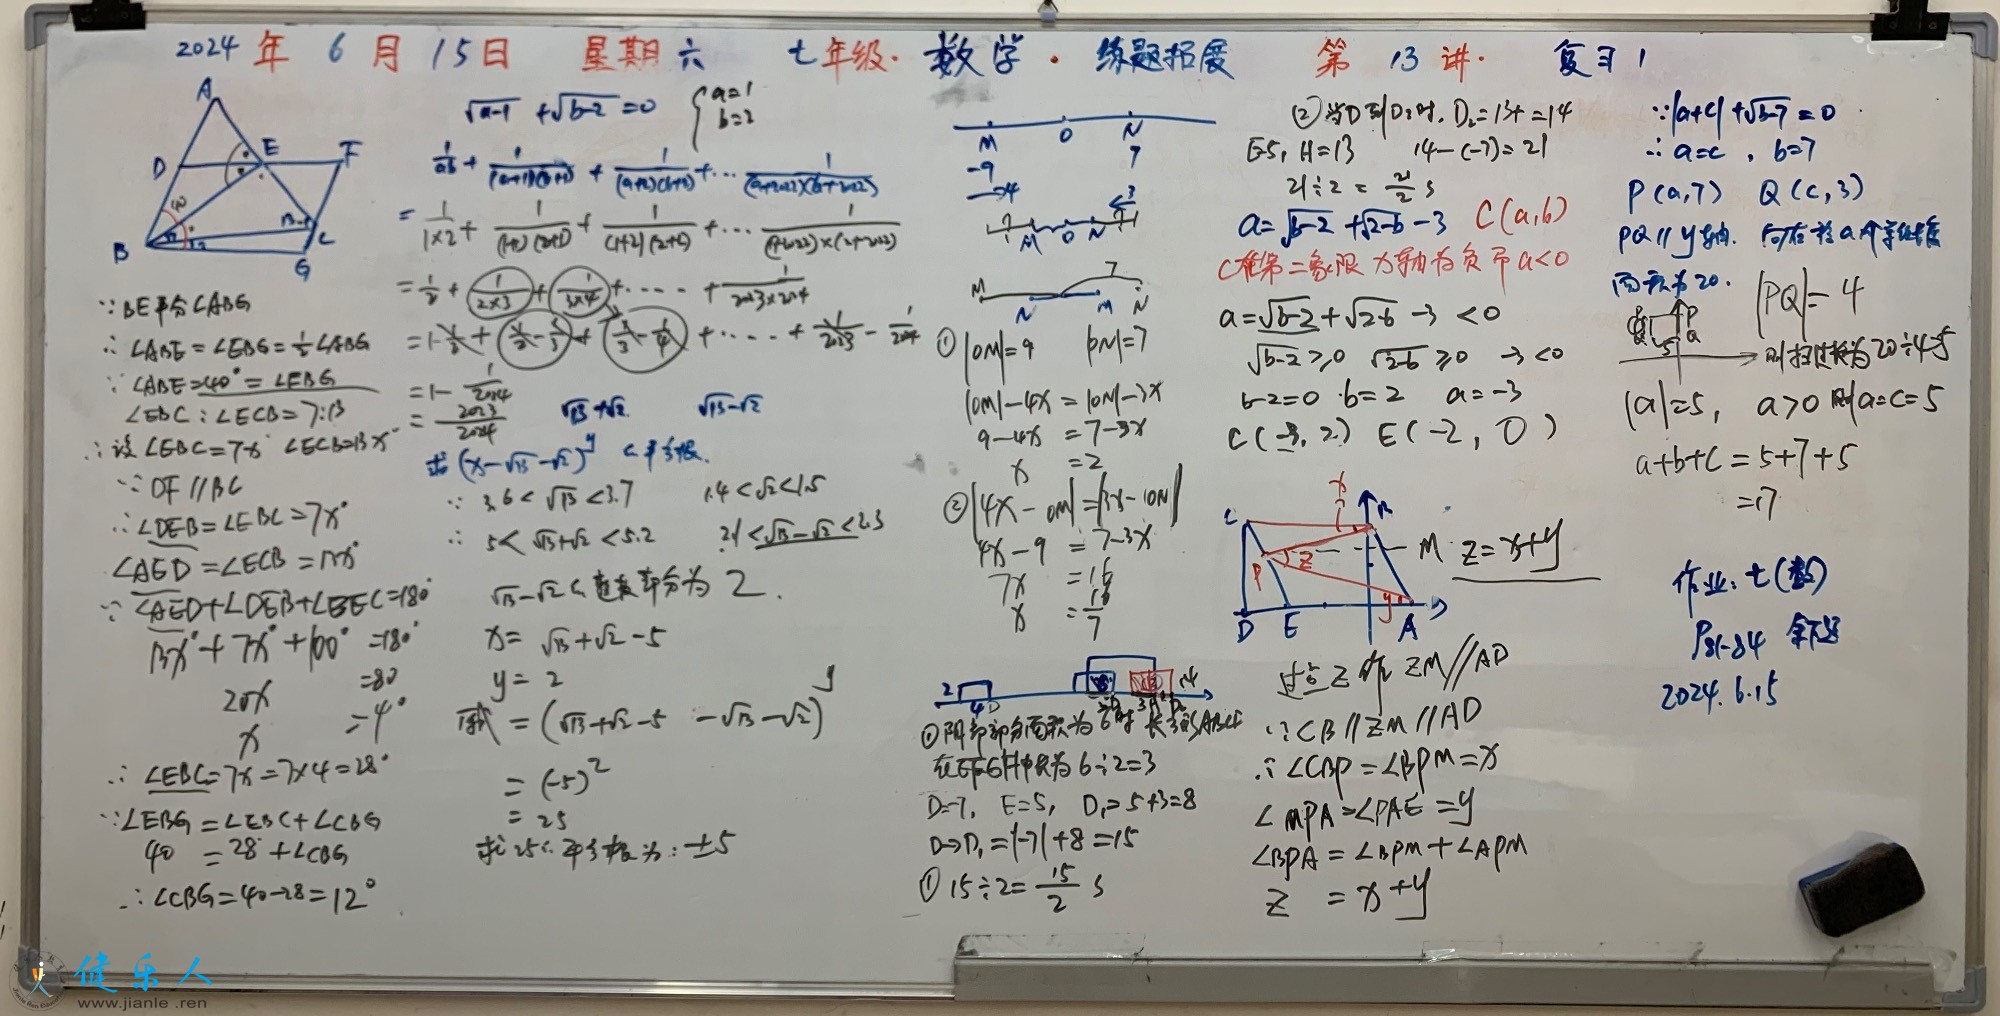 2024年6月15日 星期六 七年级·数学·练题拓展 第13讲· 复习1
A
D E F
40
B C
G
∵BE平分∠ABG
∴∠ABE=∠EBG=½∠ABG
∵∠ABE=40°=∠EBG
∠EBC:∠ECB=7:13
∴设∠EBC=7x° ∠ECB=13x°
∵DF∥BC
∴∠DEB=∠EBC=7x°
∠AED=∠ECB=13x°
∵∠AED+∠DEB+∠BEC=180°
13x°+7x°+100°=180°
20x=80
x=4°
∴∠EBC=7x=7×4=28°
∵∠EBG=∠EBC+∠CBG
40=28+∠CBG
∴∠CBG=40-28=12°
√a-1+√b-2=0 {a=1 b=2
1/ab+1/(a+1)(b+1)+1/(a+2)(b+2)+…1/(a+2022)(b+2022)
=1/1×2+1/(1+1)(2+1)+1/(1+2)(2+2)+…1/(1+2022)×(2+2022)
=1/2+1/2×3+1/3×4+…+1/2023×2024
=1-1/2+1/2-1/3+1/3-1/4+…+1/2023-1/2024
=1-1/2024
=2023/2024 √13+√2 √13-√2
求(x-√13-√2)^y
∵3.6<√13<3.7 1.4<√2<1.5
∴5<√13+√2<5.2 2.1<√13-√2<2.3
√13-√2 整数部分为2.
x=√13+√2-5
y=2
原式=(√13+√2-5-√13-√2)^y
=(-5)²
=25
求25 平方根为:±5
M O N
-9 7
→4 ←3
M O N
M 7
N M N
①|OM|=9 |ON|=7
|OM|-4x=|ON|-3x
9-4x=7-3x
x=2
②|4x-OM|=|3x-ON|
4x-9=7-3x
7x=16
x=16/7
2 4 D
①阴影部分面积为6时 长方形ABCD
在EFGH中长为6÷2=3
D=-7, E=5, D₁=5+3=8
D→D₁=|-7|+8=15
①15÷2=15/2 s
②当D到D₂时. D₂=13+1=14
E=5, H=13 14-(-7)=21
21÷2=21/2 s
a=√b-2+√2-b-3 C(a,b)
C在第二象限 x轴为负 即a<0
a=√b-2+√2-b-3<0
√b-2≥0 √2-b≥0 -3<0
b-2=0 b=2 a=-3
C(-3,2) E(-2,0)
C x B
P Z M Z=x+y
D E y A
过点Z作ZM∥AD
∵CB∥ZM∥AD
∴∠CBP=∠BPM=x
∠MPA=∠PAE=y
∠BPA=∠BPM+∠APM
Z=x+y
∵|a+c|+√b-7=0
∴a=c, b=7
P(a,7) Q(c,3)
PQ∥y轴. 向右移a个单位长度
面积为20. |PQ|=4
P Q 5 a 则 长为20÷4=5
|a|=5, a>0 则a=c=5
a+b+c=5+7+5
=17
作业: 七(数)
P81-84
2024.6.15
健乐人
www.jianle.ren